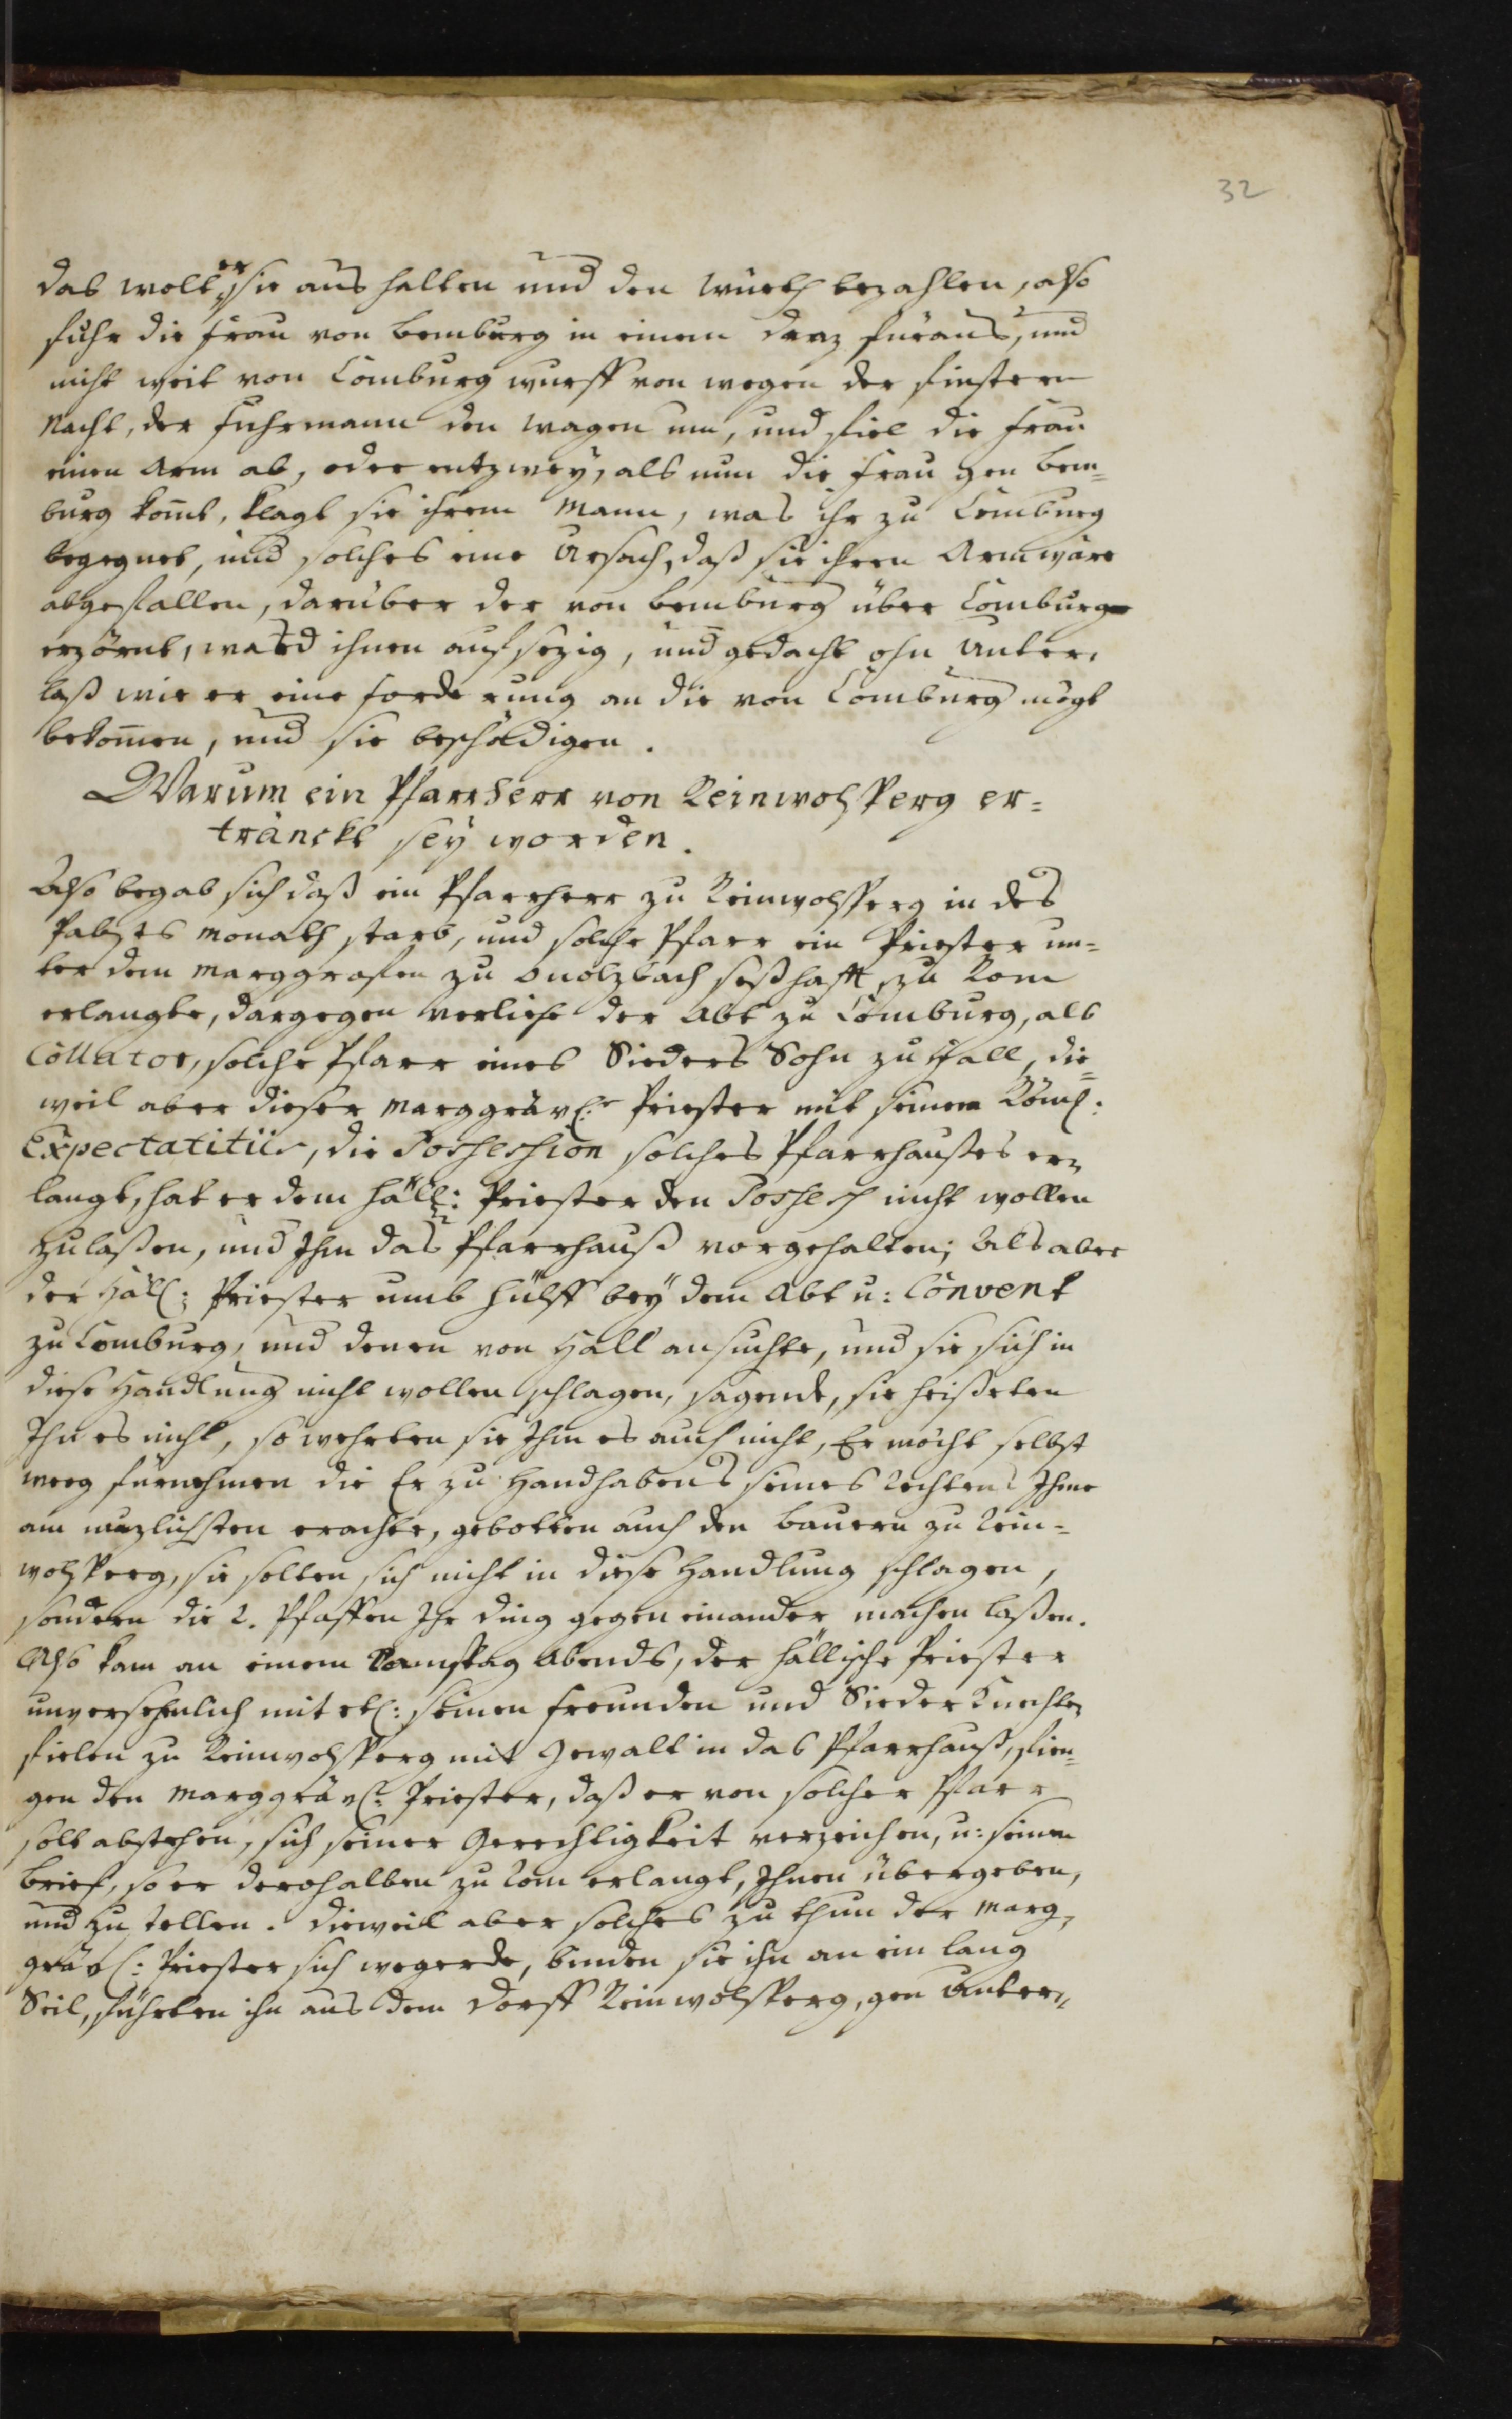 32
das wolt er sie aus halten und den Würth bezahlen, also
fuhr die Frau von Bemburg in einem draz fūraus, und
nicht weit von Comburg wurff von wegen der finstern
Nacht, der Fuhrmann den Wagen um, und fiel die Frau
einen Arm ab, oder entzwey, als nun die Frau gen Bem-
burg kom̄t, klagt sie ihrem Mann, was ihr zu Comburg
begegnet, und solches eine Ursach, daß sie ihren Arm wäre
abgefallen, darüber der von Bemburg über Comburg
erzörnt, ward ihnen aufsezig, und gedacht ohn Unter,
laß wie er eine forderung an die von Comburg mögt
bekom̄en, und sie beschädigen.
Warum ein Pfarrherr von Reinwolsperg er=
tränckt sey worden.
Also begab sich daß ein Pfarrherr zu Reinwolsperg in des
Pabstes Monath starb, und solche Pfarr ein Priester un=
ter dem Marggrafen zu Onolzbach seßhafft, zu Rom
erlangte, dargegen verliehe der Abt zu Comburg, als
Collator, solche Pfarr eines Sieders Sohn zu Hall, die=
weil aber dieser Marggrävl:r Priester mit seinem Röml:
Expectatitiis, die Possession solches Pfarrhaußes er=
langt, hat er dem Häll: Priester den Possess nicht wollen
zulaßen, und Ihm das Pfarrhauß vorgehalten; Als aber
der Häll: Priester umb Hülff bey dem Abt u: Convent
zu Comburg, und denen von Hall ansuchte, und sie sich in
diese Handlung nicht wollen schlagen, sagende, sie heißeten
Ihn es nicht, so wehrten sie Ihm es auch nicht, Er möcht selbst
weeg fürnehmen die Er zu Handhabens seines Rechtens Ihme
am nuzlichsten erachte, gebotten auch den Bauern zu Rein=
wolsperg, sie solten sich nicht in diese Handlung schlagen,
sondern die 2. Pfaffen Ihr ding gegen einander machen laßen.
Also kam an einem Samstag Abends, der hällische Priester
unversehenlich mit etl: seinen Freunden und Sieder Knechten
fielen zu Reinwolsperg mit Gewalt in das Pfarrhauß, fien=
gen den Marggrävl: Priester, daß er von solcher Pfarr
solt abstehen, sich seiner Gerechtigkeit verzeichen, u: seinen
Brief, so er derohalben zu Rom erlangt, Ihnen übergeben,
und zu stellen. dieweil aber solches zu thun der Marg,
grävl: Priester sich wegerde, bunden sie ihn an ein lang
Seil, führten ihn aus dem Dorff Reinwolsperg, gen Unter,